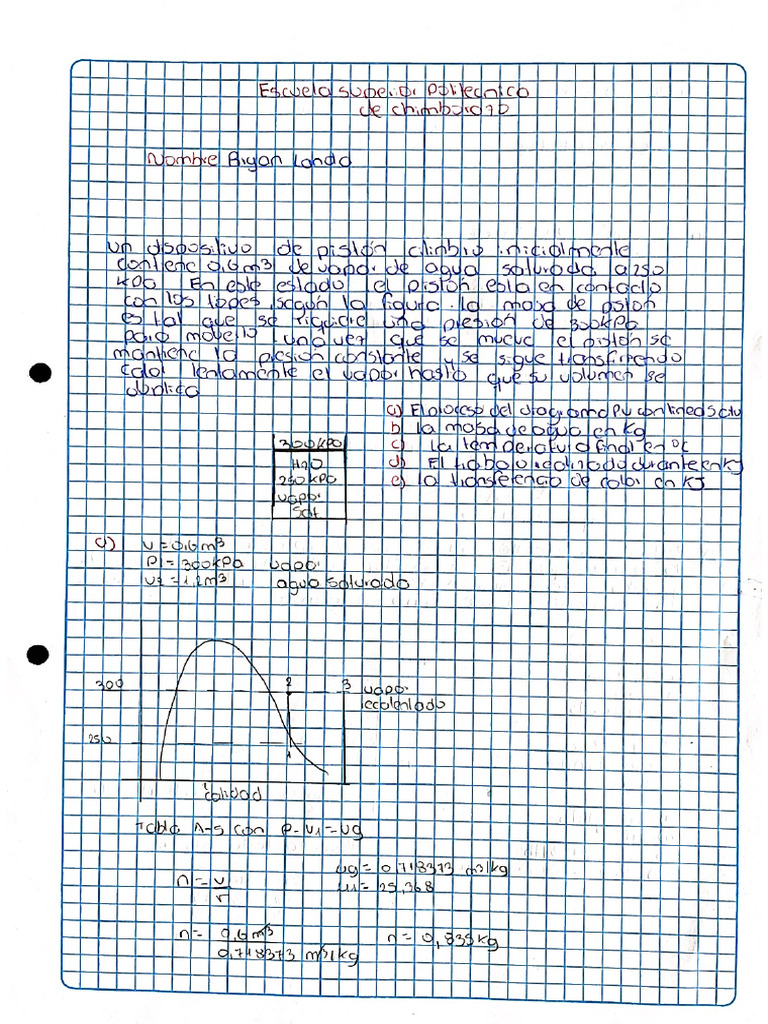 Escuela superior Politecnica
de chimborazo
Nombre Bryan Landa
un dispositivo de pistón cilinbro inicialmente
contiene 0,6 m³ de vapor de agua saturada a 250
KPa En este estado el pistón esta en contacto
con los topes, según la figura. la masa de piston
es tal que se riquiere una presion de 300kPa
para moverlo una vez que se mueve el pistón se
mantiene la presion constante y se sigue transfiriendo
calor lentamente el vapor hasta que su volumen se
duplica
a) El proceso del diagrama PV con linea Satu
b la masa de agua en kg
c) la temperatura final en °c
d) El trabajo realizado durante en KJ
e) la transferencia de calor en KJ
300 KPa
H2O
250 KPa
vapor
Sat
a) V = 0,6 m³
P1 = 300kPa vapor
V2 = 1,2m³ agua saturada
300 2 3 vapor
recalentado
250
1
calidad
Tabla A-5 con P- V1 = Vg
vg = 0,718373 m3/kg
n = v
r
n = 0,6 m³
0,718373 m³/kg
n = 0,835 kg